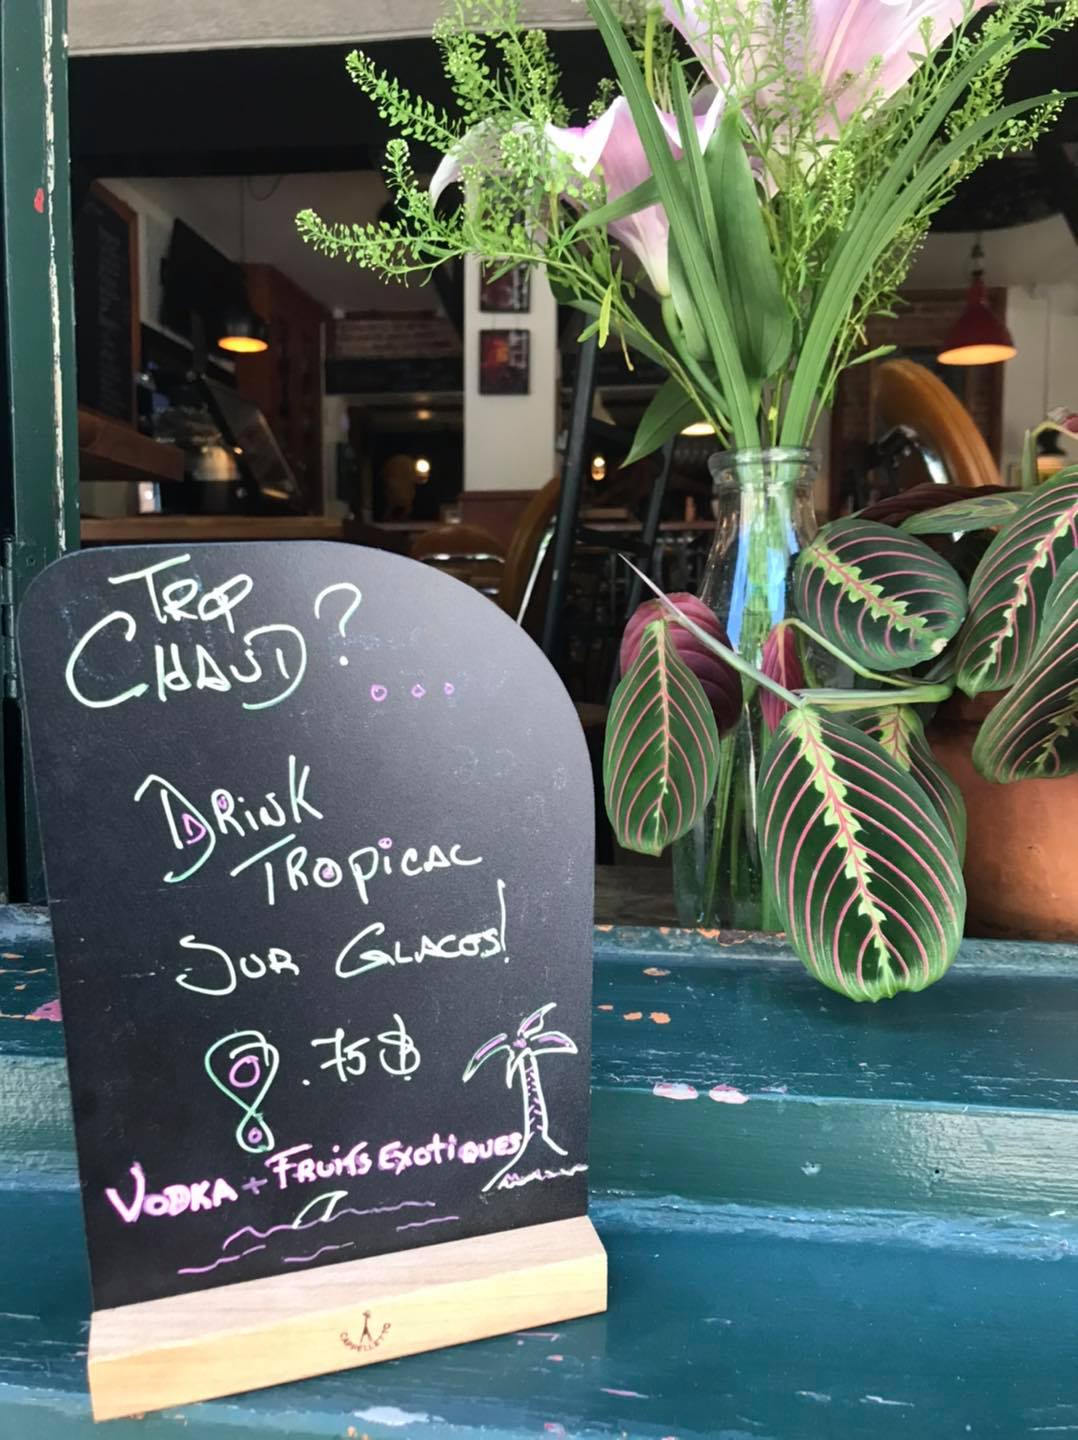 TROP
CHAUD?
...
DRINK
TROPICAL
SUR GLACOS!
8.75$
VODKA + FRUITS EXOTIQUES
CAPPELLETTO